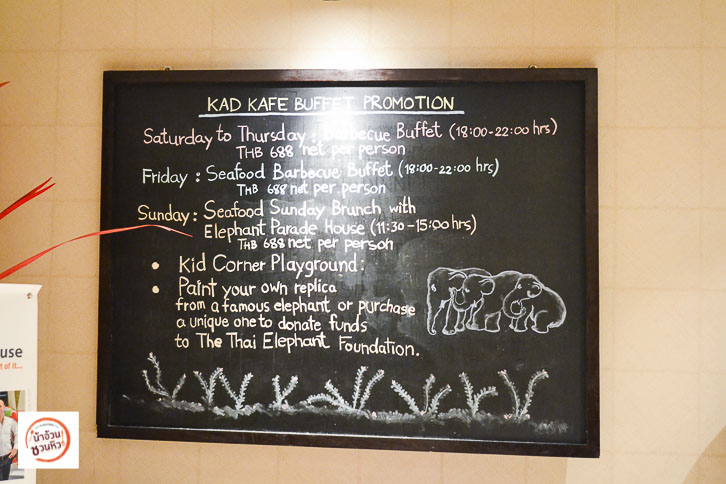 KAD KAFE BUFFET PROMOTION
Saturday to Thursday : Barbecue Buffet (18:00-22:00 hrs)
THB 688 net per person
Friday : Seafood Barbecue Buffet (18:00-22:00 hrs)
THB 688 net per person
Sunday : Seafood Sunday Brunch with
Elephant Parade House (11:30-15:00 hrs)
THB 688 net per person
• Kid Corner Playground :
• Paint your own replica
from a famous elephant or purchase
a unique one to donate funds
to The Thai Elephant Foundation.
use
t of it...
น้าอ้วน
ชวนหิว